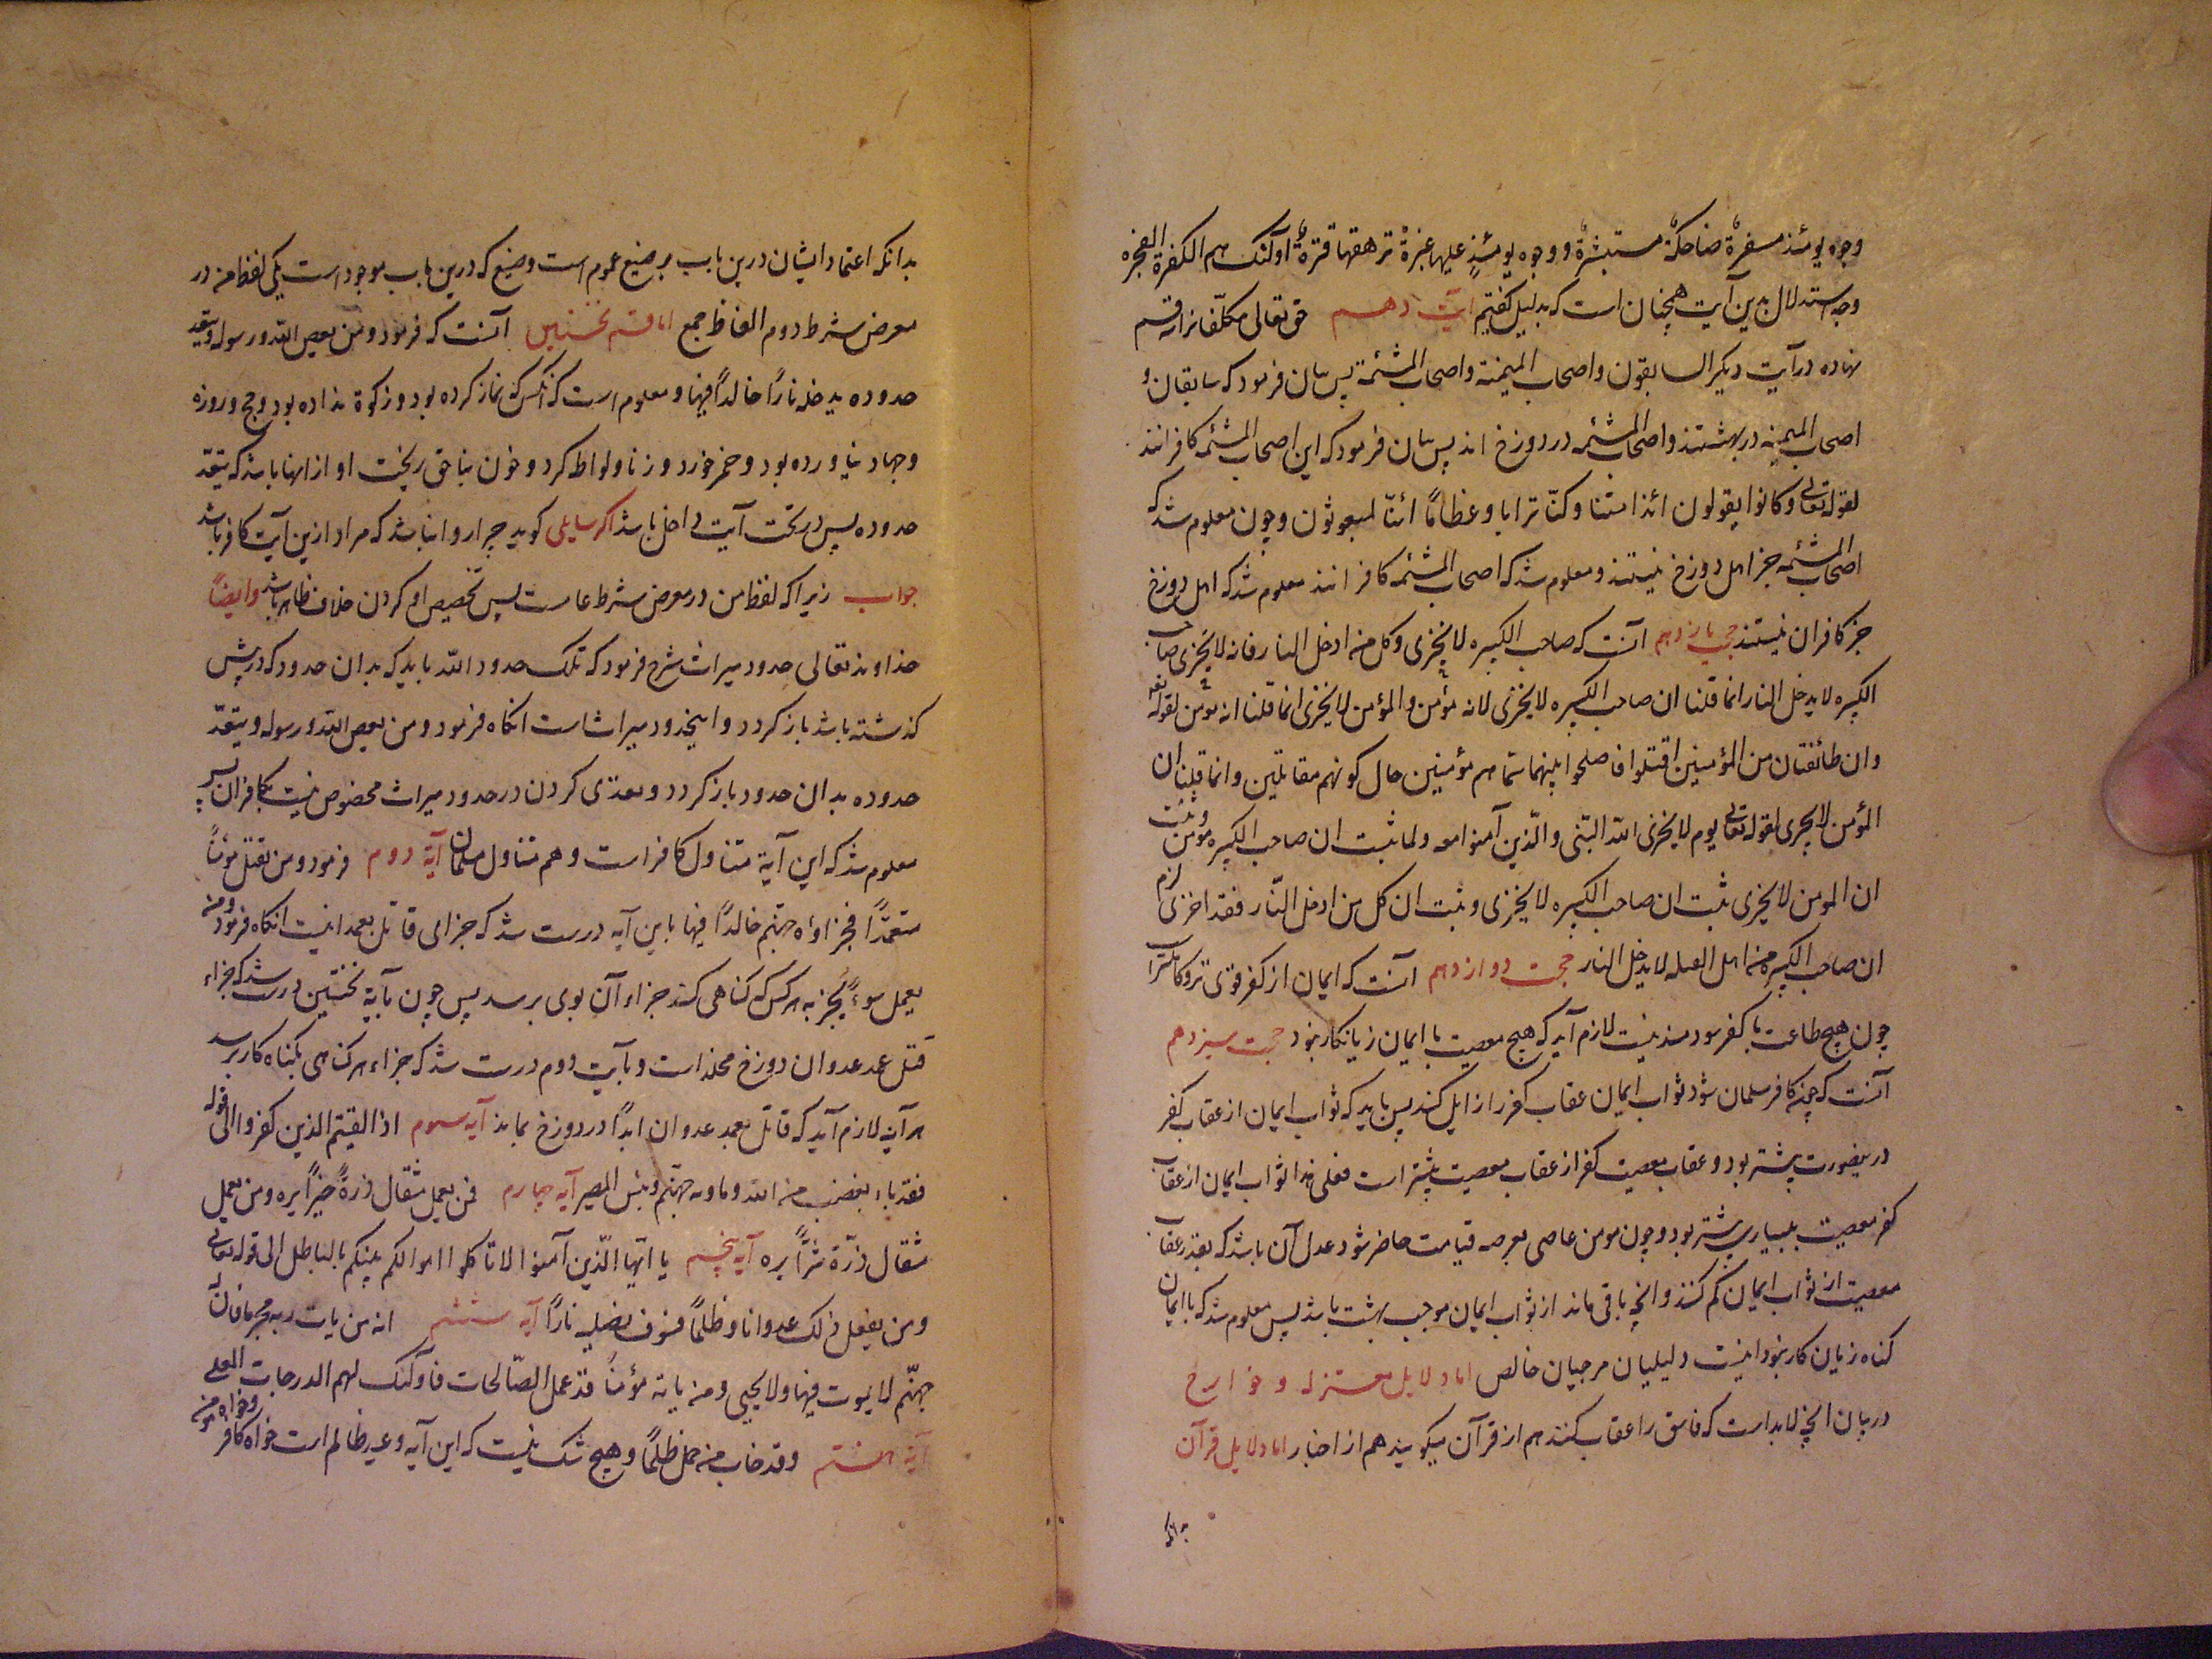 وجوه يومئذ مسفرةٌ ضاحكةٌ مستبشرةٌ ووجوه يومئذٍ عليها غبرةٌ ترهقها قترةٌ اولٓئک هم الكفرة الفجره
وجه استدلال بدین آیت همچنان است که بدلیل گفتیم آیت دهم حق تعالی مکلفانرا سه قسم
نهاده در آیت دیگر السابقون واصحاب الميمنة واصحاب المشئمة پس بیان فرمود که سابقان و
اصحاب الميمنه در بهشتند واصحاب المشئمه در دوزخ اند پس بیان فرمود که این اصحاب المشئمه کافرانند
لقوله تعالی وكانوا يقولون ائذا متنا وكنّا ترابا وعظامًا ائنّا لمبعوثون وچون معلوم شد که
اصحاب المشئمه جز اهل دوزخ نیستند ومعلوم شد که اصحاب المشئمه کافرانند معلوم شد که اهل دوزخ
جز کافران نیستند حجت یازدهم آنست که صاحب الكبيره لا يخزى وكل من ادخل النار فانه لا يخزى صاحب
الكبيره لا يدخل النار انما قلنا ان صاحب الكبيره لا يخزى لانه مؤمن والمؤمن لا يخزى انما قلنا انه مؤمن لقوله تعالی
وان طائفتان من المؤمنين اقتتلوا فاصلحوا بينهما سماهم مؤمنين حال كونهم مقاتلين وانما قلنا ان
المؤمن لا يخزى لقوله تعالی يوم لا يخزى الله النبى والّذين آمنوا معه ولما ثبت ان صاحب الكبيره مؤمن وثبت
ان المومن لا يخزى ثبت ان صاحب الكبيره لا يخزى وثبت ان كل من ادخل النّار فقد اخزى لزم
ان صاحب الكبيرة من اهل القبله لا يدخل النار حجت دوازدهم آنست که ایمان از کفر قوی تر وکاملتراست
چون هیچ طاعت با کفر سودمند نیست لازم آید که هیچ معصیت با ایمان زیانکار نبود حجت سیزدهم
آنست که چون کافر مسلمان شود ثواب ایمان عقاب کفر را زایل کند پس باید که ثواب ایمان از عقاب کفر
درینصورت بیشتر بود وعقاب معصیت کفر از عقاب معصیت بیشتر است فعلی هذا ثواب ایمان از عقاب
کفر معصیت ببسیاری بیشتر بود وچون مومن عاصی بعرصه قیامت حاضر شود عدل آن باشد که بقدر عقاب
معصیت از ثواب ایمان کم کنند وانچه باقی ماند از ثواب ایمان موجب بهشت باشد پس معلوم شد که با ایمان
گناه زیان کار نبود اینست دلیلیان مرجیان خالص اما دلایل معتزله وخوارج
در بیان انچه لابد است که فاسق را عقاب کنند هم از قرآن میگویند هم از اخبار اما دلایل قرآن
بدانکه
بدانکه اعتماد ایشان درین باب بر صیغ عموم است وصیغ که درین باب موجود است یکی لفظ من در
معرض شرط دوم الفاظ جمع اما قسم نخستین آنست که فرمود ومن يعص الله ورسوله ويتعد
حدوده يدخله نارًا خالدًا فيها ومعلوم است که آنکس که نماز نکرده بود وزکوة نداده بود وحج وروزه
وجهاد نیاورده بود وخمر خورد وزنا ولواط کرد وخون بناحق ریخت او ازانها باشد که يتعد
حدوده پس در تحت آیت داخل باشد اکر سایلی کوید چرا روا نباشد که مراد ازین آیت کافر باشد
جواب زیراکه لفظ من در معرض شرط عامست پس تخصیص او کردن خلاف ظاهر باشد وایضًا
خداوند تعالی حدود میراث شرح فرمود که تلک حدود الله باید که بدان حدود که در پیش
کذشته باشد باز کردد و اینحدود میراث است انکاه فرمود ومن يعص الله ورسوله ويتعد
حدوده بدان حدود باز کردد وتعدّی کردن در حدود میراث مخصوص نیست بکافران پس
معلوم شد که این آیة متناول کافر است وهم متناول مسلمان آیة دوم فرمود ومن يقتل مؤمنًا
متعمدًا فجزاؤه جهنّم خالدًا فيها باین آیه درست شد که جزای قاتل بعمد اینست انکاه فرمود ومن
يعمل سوءًا يُجز به هرکس که کناهی کند جزاء آن بوی برسد پس چون بآیة نخستین درست شد که جزاء
قتل عمد عدوان دوزخ مخلد است وبآیت دوم درست شد که جزاء هر کناهی بکناه کار برسد
هرآینه لازم آید که قاتل بعمد عدوان ابدًا در دوزخ بماند آیه سوم اذا لقيتم الذين كفروا الی قوله
فقد باء بغضب من الله وماويه جهنّم وبئس المصير آیه چهارم فمن يعمل مثقال ذرةً خيرًا يره ومن يعمل
مثقال ذرّة شرًّا يره آیه پنجم يا ايّها الّذين آمنوا لا تأكلوا اموالكم بينكم بالباطل الی قوله تعالی
ومن يفعل ذلک عدوانا وظلمًا فسوف نصليه نارًا آیه ششم انه من يات ربه مجرما فان له
جهنّم لا يموت فيها ولا يحيى ومن ياته مؤمنًا قد عمل الصّالحات فاولٓئک لهم الدرجات العلى
آیة هفتم وقد خاب من حمل ظلمًا وهیچ شک نیست که این آیه وعید ظالم است خواه کافر وخواه مومن